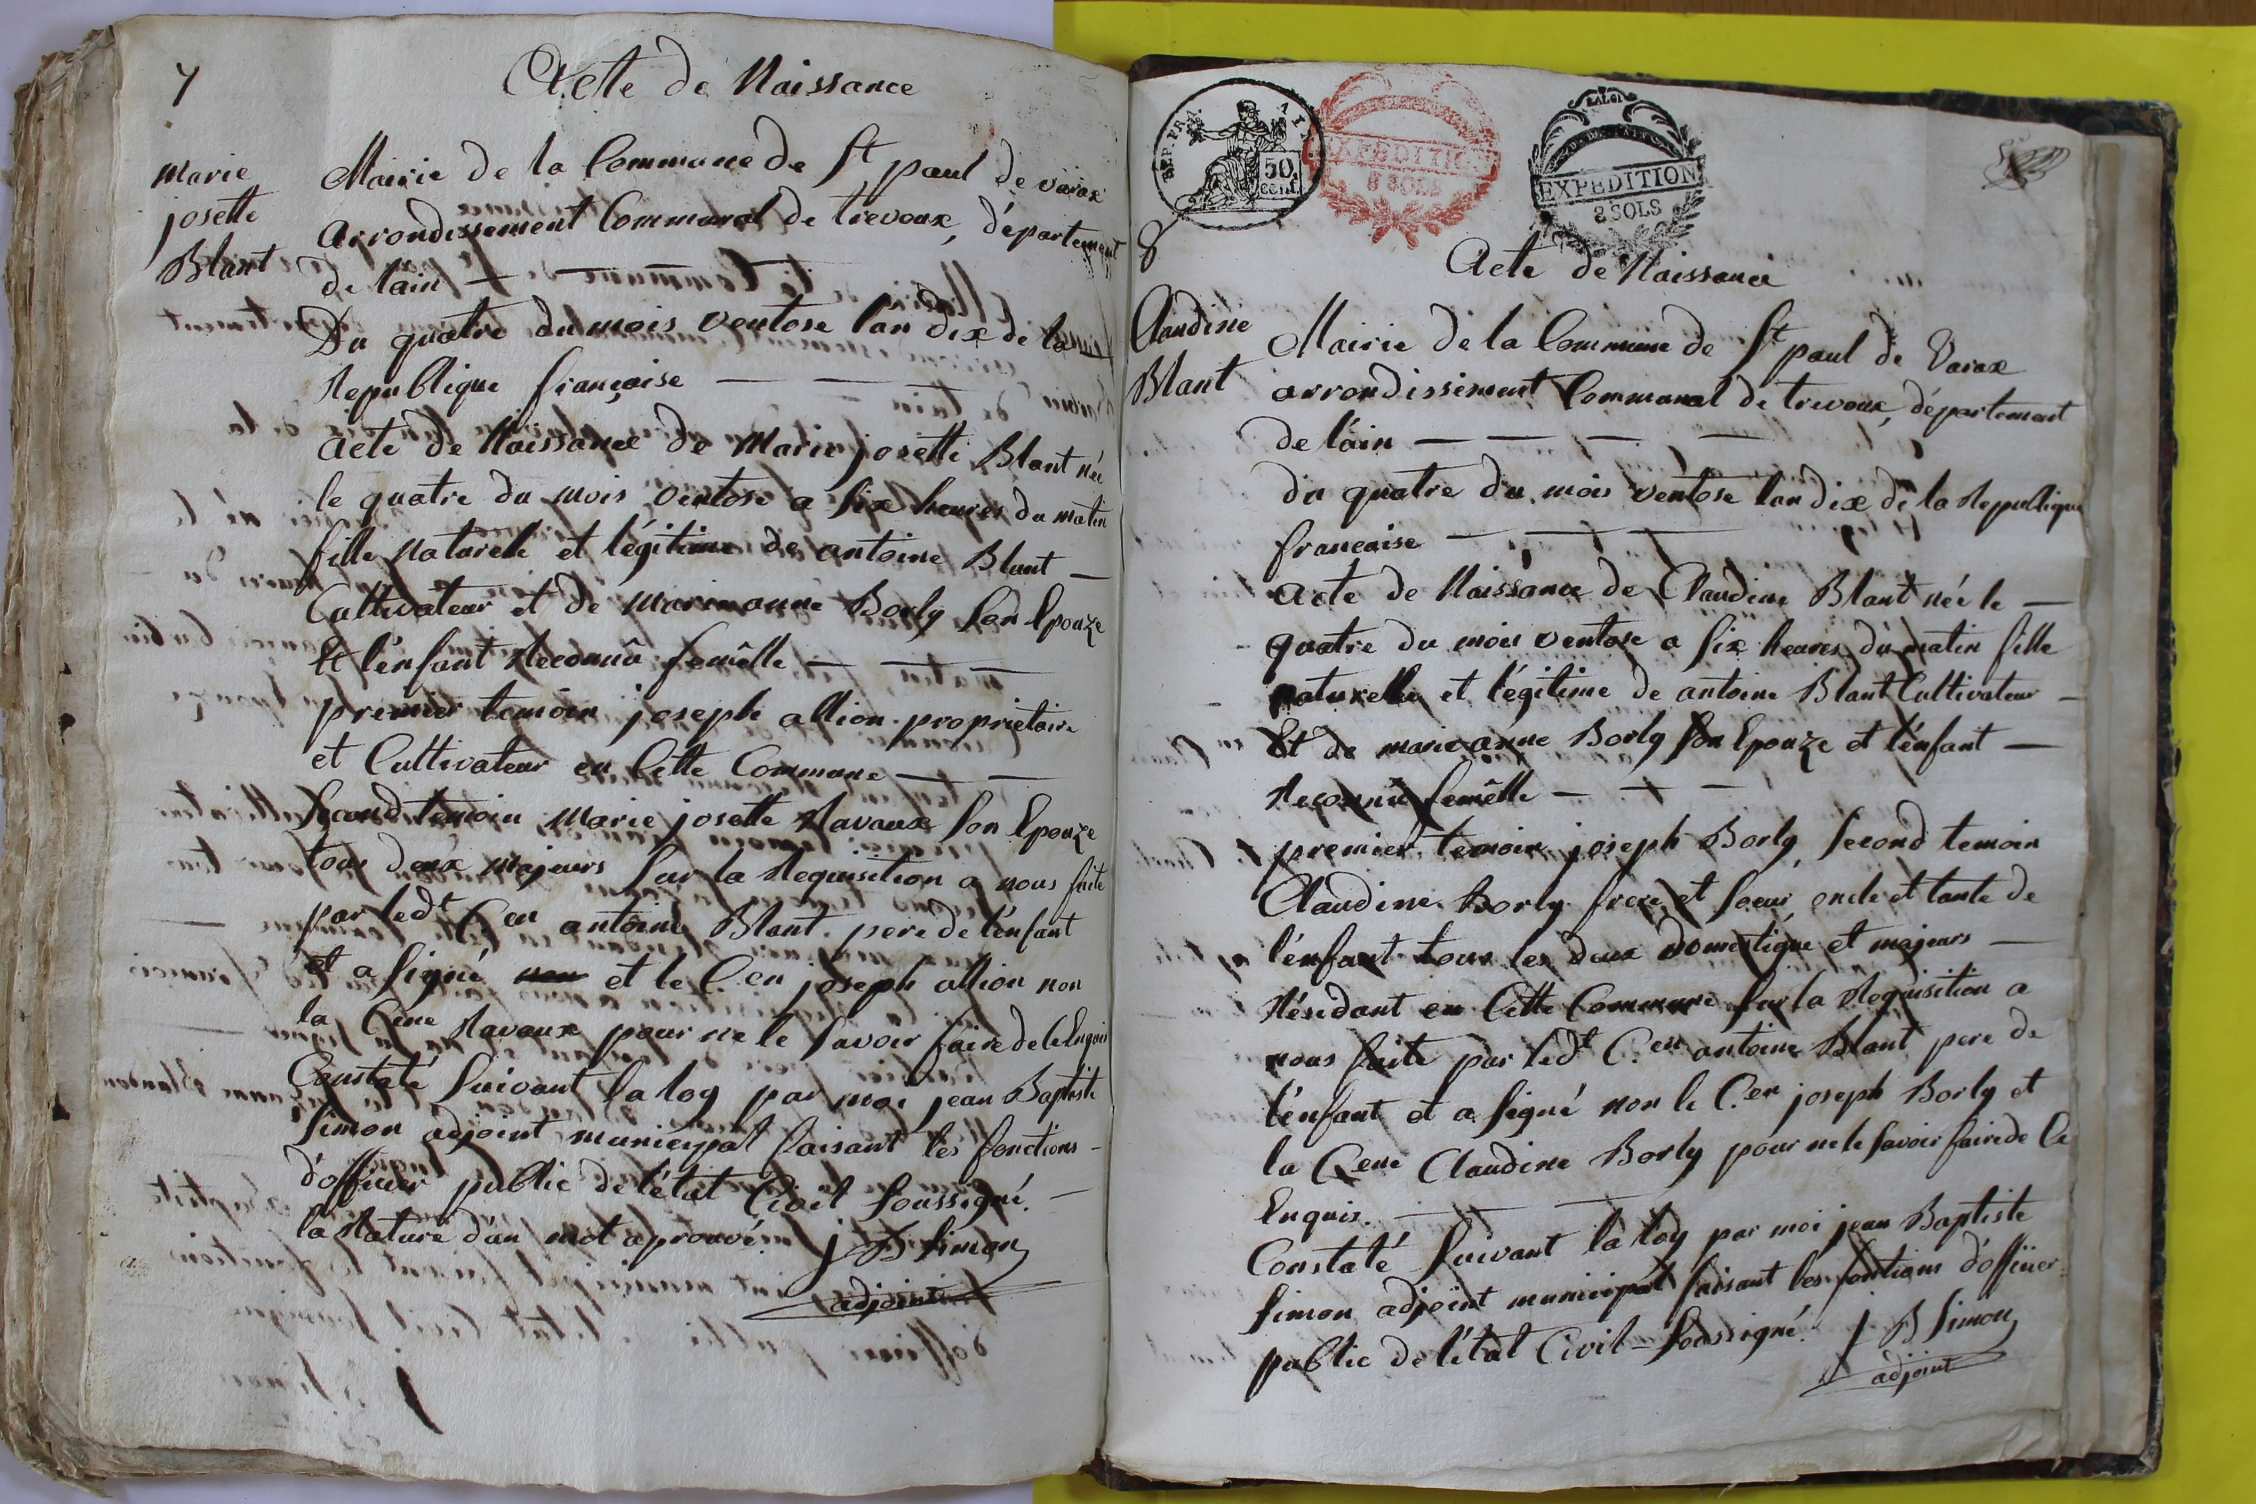 7
Acte de Naissance
marie
josette
Blant
Mairie de la Commune de St paul de varax
arrondissement Communal de trevoux, département
de lain
Du quatre du mois ventose l'an dix de la
Republique française
acte de Naissance de Marie josette Blant née
le quatre du mois ventose a six heures du matin
fille naturele et légitime de antoine Blant
Cultivateur et de marieanne Borly son Epouze
Et l'enfant Reconnû femêlle
premier temoin joseph allion propriétaire
et Cultivateur en Cette Commune
Second temoin Marie josette Ravaux son Epouze
tous deux majeurs sur la Requisition a nous faite
par ledt C.en antoine Blant pere de l'enfant
et a signé non et le C.en joseph allion non
la C.ene Ravaux pour ne le savoir faire de Ce Enquis
Constaté suivant la loy par moi jean Baptiste
Simon adjoint municipal faisant les fonctions
d'officier public de l'état Civil soussigné.
la Rature d'un mot aprouvé. j B Simon
adjoint
REP. FRA.
50
cent.
EXPEDITION
8 SOLS
EXPEDITION
8 SOLS
8
Acte de Naissance
Claudine
Blant
Mairie de la Commune de St paul de Varax
arrondissement Communal de trevoux, département
de l'ain
du quatre du mois ventose l'an dix de la Republique
francaise
acte de Naissance de Claudine Blant née le
quatre du mois ventose a six heures du matin fille
naturelle et légitime de antoine Blant Cultivateur
Et de marieanne Borly son Epouze et l'enfant
Reconnû femêlle
premier temoin joseph Borly, second temoin
Claudine Borly frere et soeur, oncle et tante de
l'enfant tous les deux domestique et majeurs
Résidant en Cette Commune sur la Requisition a
nous faite par ledt C.en antoine Blant pere de
l'enfant et a signé non le C.en joseph Borly et
la C.ene Claudine Borly pour ne le savoir faire de Ce
Enquis.
Constaté suivant la loy par moi jean Baptiste
simon adjoint municipal faisant les fontions d'officier
public de l'état Civil soussigné. j B Simon
adjoint